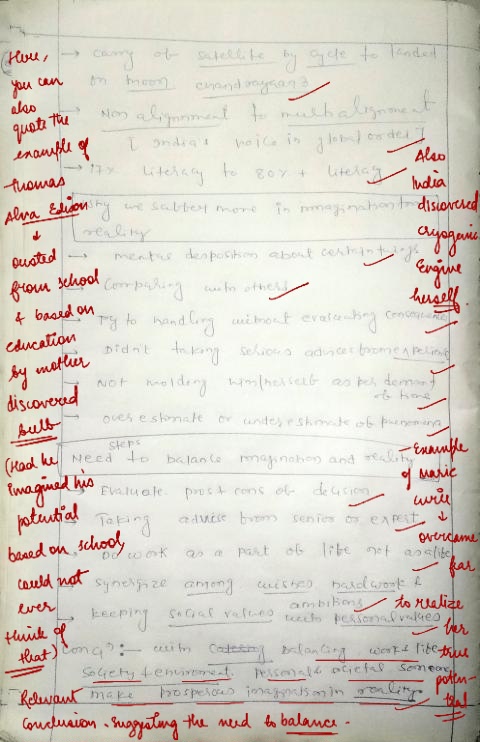 → carry of satellite by cycle to landed
on moon chandrayaan3
→ Non alignment to multialignment
[India's voice in global order]
→ 17% literacy to 80% + literacy
why we suffer more in imagination than in
reality
→ mental desposition about certain things
→ Comparing with others
→ Try to handling without evaluating consequences
→ Didn't taking serious advices from experience
→ Not molding him/herself as per demand
of time
→ over estimate or under estimate of phenomena
steps
Need to balance imagination and reality
→ Evaluate pros & cons of decision
→ Taking advise from senior or expert
→ Do work as a part of life not as a life
→ synergize among wishes hardwork &
ambitions
→ keeping social values with personal values
Conc?:- with balancing work life
society & enviroment personal & societal
make prosperous imagination in reality
Here,
you can
also
quote the
example of
thomas
Alva Edison
↓
ousted
from school
& based on
education
by mother
discovered
bulb
(Had he
imagined his
potential
based on school,
could not
ever
think of
that)
Also
India
discovered
cryogenic
Engine
herself.
Example
of Marie
curie
↓
overcame
far
to realize
her
true
poten-
tial
Relevant
conclusion. suggesting the need to balance.